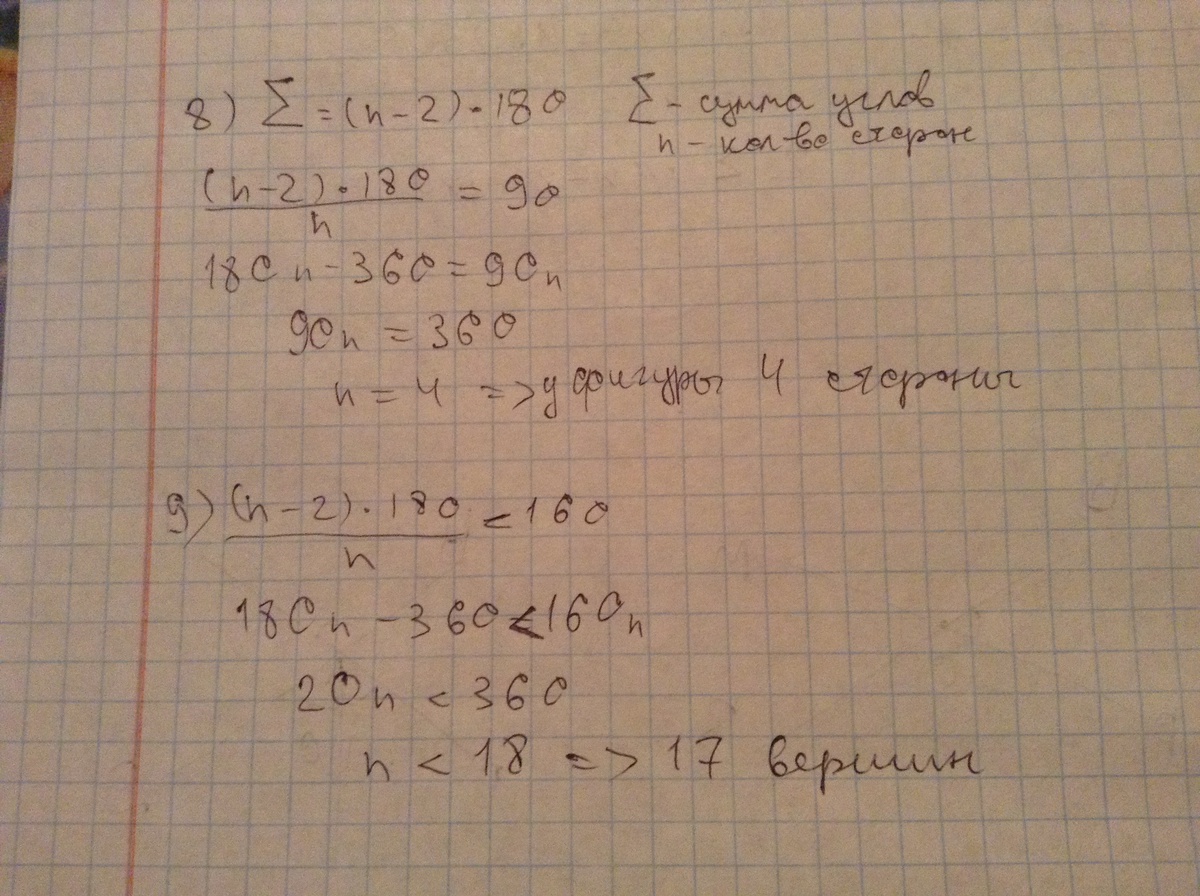 8) Σ = (n-2)·180 Σ - сумма углов
n - кол-во сторон
(n-2)·180 / n = 90
180n - 360 = 90n
90n = 360
n = 4 => у фигуры 4 стороны
9) (n-2)·180 / n < 160
180n - 360 < 160n
20n < 360
n < 18 => 17 вершин